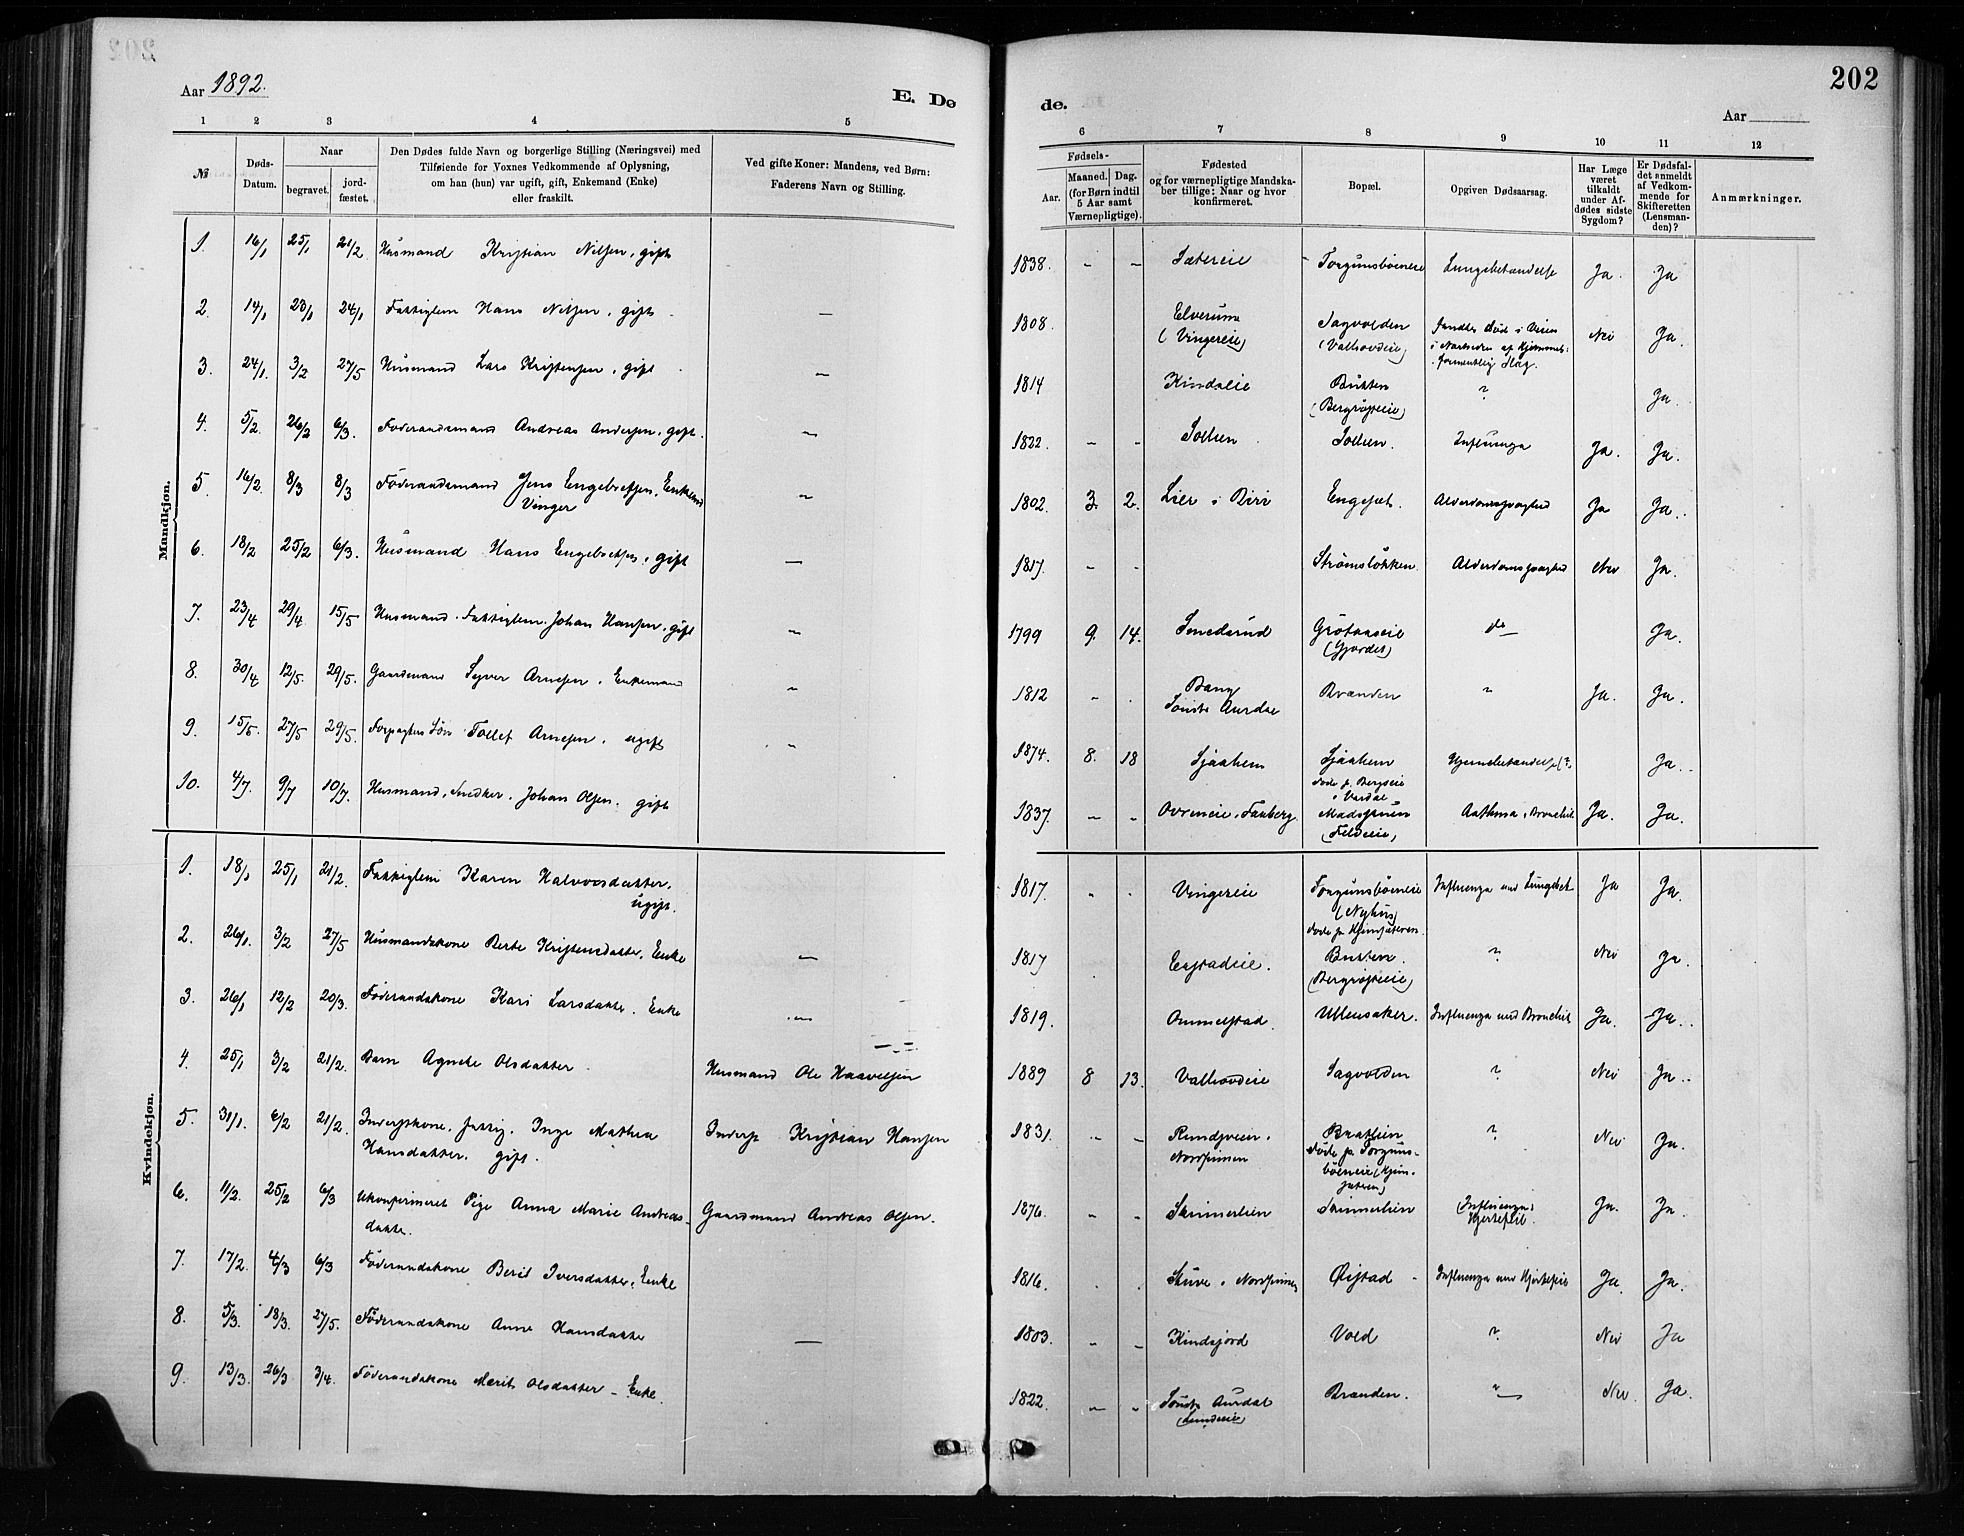 202
Aar 1892.
E. Dø
de.
Aar
1 2 3 4 5
6 7 8 9 10 11 12
№
Døds-
Datum.
Naar
begravet.
jord-
fæstet.
Den Dødes fulde Navn og borgerlige Stilling (Næringsvei) med
Tilføiende for Voxnes Vedkommende af Oplysning,
om han (hun) var ugift, gift, Enkemand (Enke)
eller fraskilt.
Ved gifte Koner: Mandens, ved Børn:
Faderens Navn og Stilling.
Fødsels-
Aar.
Maaned. Dag.
(for Børn indtil
5 Aar samt
Værnepligtige).
Fødested
og for værnepligtige Mandska-
ber tillige: Naar og hvor
konfirmeret.
Bopæl.
Opgiven Dødsaarsag.
Har Læge
været
tilkaldt
under Af-
dødes sidste
Sygdom?
Er Dødsfal-
det anmeldt
af Vedkom-
mende for
Skifteretten
(Lensman-
den)?
Anmærkninger.
Mandkjøn.
1. 16/1 25/1 21/2 Husmand Kristian Nilsen, gift 1838. - - Sætereie Torgunsbøeneie Lungebetændelse Ja. Ja
2. 14/1 23/1 24/1 Fattiglem Hans Nilsen, gift - 1808. Elverum Sagvolden Nei Ja.
(Vingereie) (Valhovdeie)
formentlig Slag.
3. 24/1. 3/2 27/5 Husmand Lars Kristensen, gift - 1814 Kindslie ? Ja.
(Bergrøsteie)
4. 5/2. 26/2 6/3. Føderaadsmand Andreas Andersen, gift. - 1822. - - Sollien Solhien. Influenza Ja. Ja.
5. 16/2. 8/3 8/3 Føderaadsmand Jens Engebretsen, Enkem. - 1802. 3. 2. Lier i Biri Engeset. Alderdomssvaghed Ja Ja.
Vinger
6. 18/2 25/2 6/3. Husmand Hans Engebretsen, gift - 1817. - - Strømsløkken. Alderdomssvaghed Nei Ja.
7. 23/4 29/4 15/5 Husmand. Fattiglem. Johan Hansen, gift - 1799 9. 14. Smedsrud do Ja.
8. 30/4 12/5. 29/5. Gaardmand Syver Arnesen. Enkemand - 1812 - . Bang Branden " Ja. Ja.
Søndre Aurdal
9. 15/5. 27/5 29/5. Forpagters Søn Tollef Arnesen, ugift - 1874. 8. 18 Sjaahem Sjaahem Hjernebetændelse (?) Ja.
Døde p. Bergseie
i Vardal
10. 4/7. 9/7 10/7. Husmand, Snedker, Johan Olsen. gift 1837. - - Fauberg. Asthma, Bronchit Ja. Ja.
Kvindekjøn.
1. 18/1 25/1 21/2. Fattiglem Karen Halvorsdatter, 1817. - . Vingereie Torgunsbøeneie Influenza med Lungebet. Ja Ja.
ugift. (Nyhus)
2. 26/1. 3/2 27/5 Husmandskone Berte Kristensdatter, Enke - 1817 Engstadeie. ? Nei Ja.
(Bergrøsteie)
3. 26/1 12/2 20/3. Føderaadskone Kari Larsdatter. Enke - 1819. Ommelstad. Ullensaker. Influenza med Bronchit Ja. Ja.
4. 25/1 3/2 21/2. Barn Agnete Olsdatter Husmand Ole Haavelsen 1889 8 13. Valhovdeie Sagvolden ? Nei Ja.
5. 31/1. 6/2 21/2. Inderstkone, fattig. Inge Mathea Inderst Kristian Hansen 1831. - - Braatlien ? Nei Ja.
Hansdatter, gift. Nordsinnen døde p. Torguns-
6. 11/2. 25/2 6/3 Ukonfirmeret Pige Anna Marie Andreas- Gaardmand Andreas Olsen. 1876. - - Skinnerlien Skinnerlien (Influenza) Ja. Ja.
datter. Hjertefeil.
7. 17/2. 4/3 6/3 Føderaadskone Berit Iversdatter, Enke 1816. . . Skuve i Nordsinnen Øistad - Influenza med Hjertefeil Ja. Ja.
8. 5/3. 18/3. 27/5. Føderaadskone Anne Hansdatter - 1803. - - Kindsjord Vold ? Nei Ja
9. 13/3. 26/3 3/4. Føderaadskone Marit Olsdatter - Enke. 1822. - - Søndre Aurdal Branden. - Nei. Ja.
(Lundeeie)